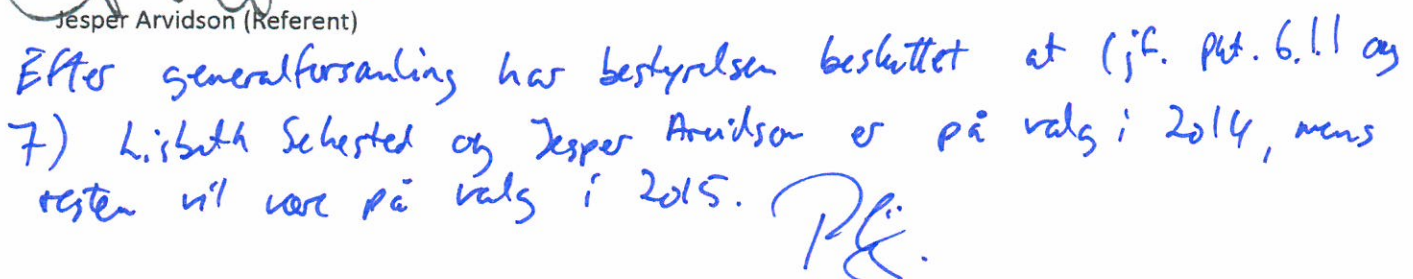 Jesper Arvidson (Referent)
Efter generalforsamling har bestyrelsen besluttet at (jf. pkt. 6.1.1 og
7) Lisbeth Sehested og Jesper Arvidson er på valg i 2014, mens
resten vil være på valg i 2015.